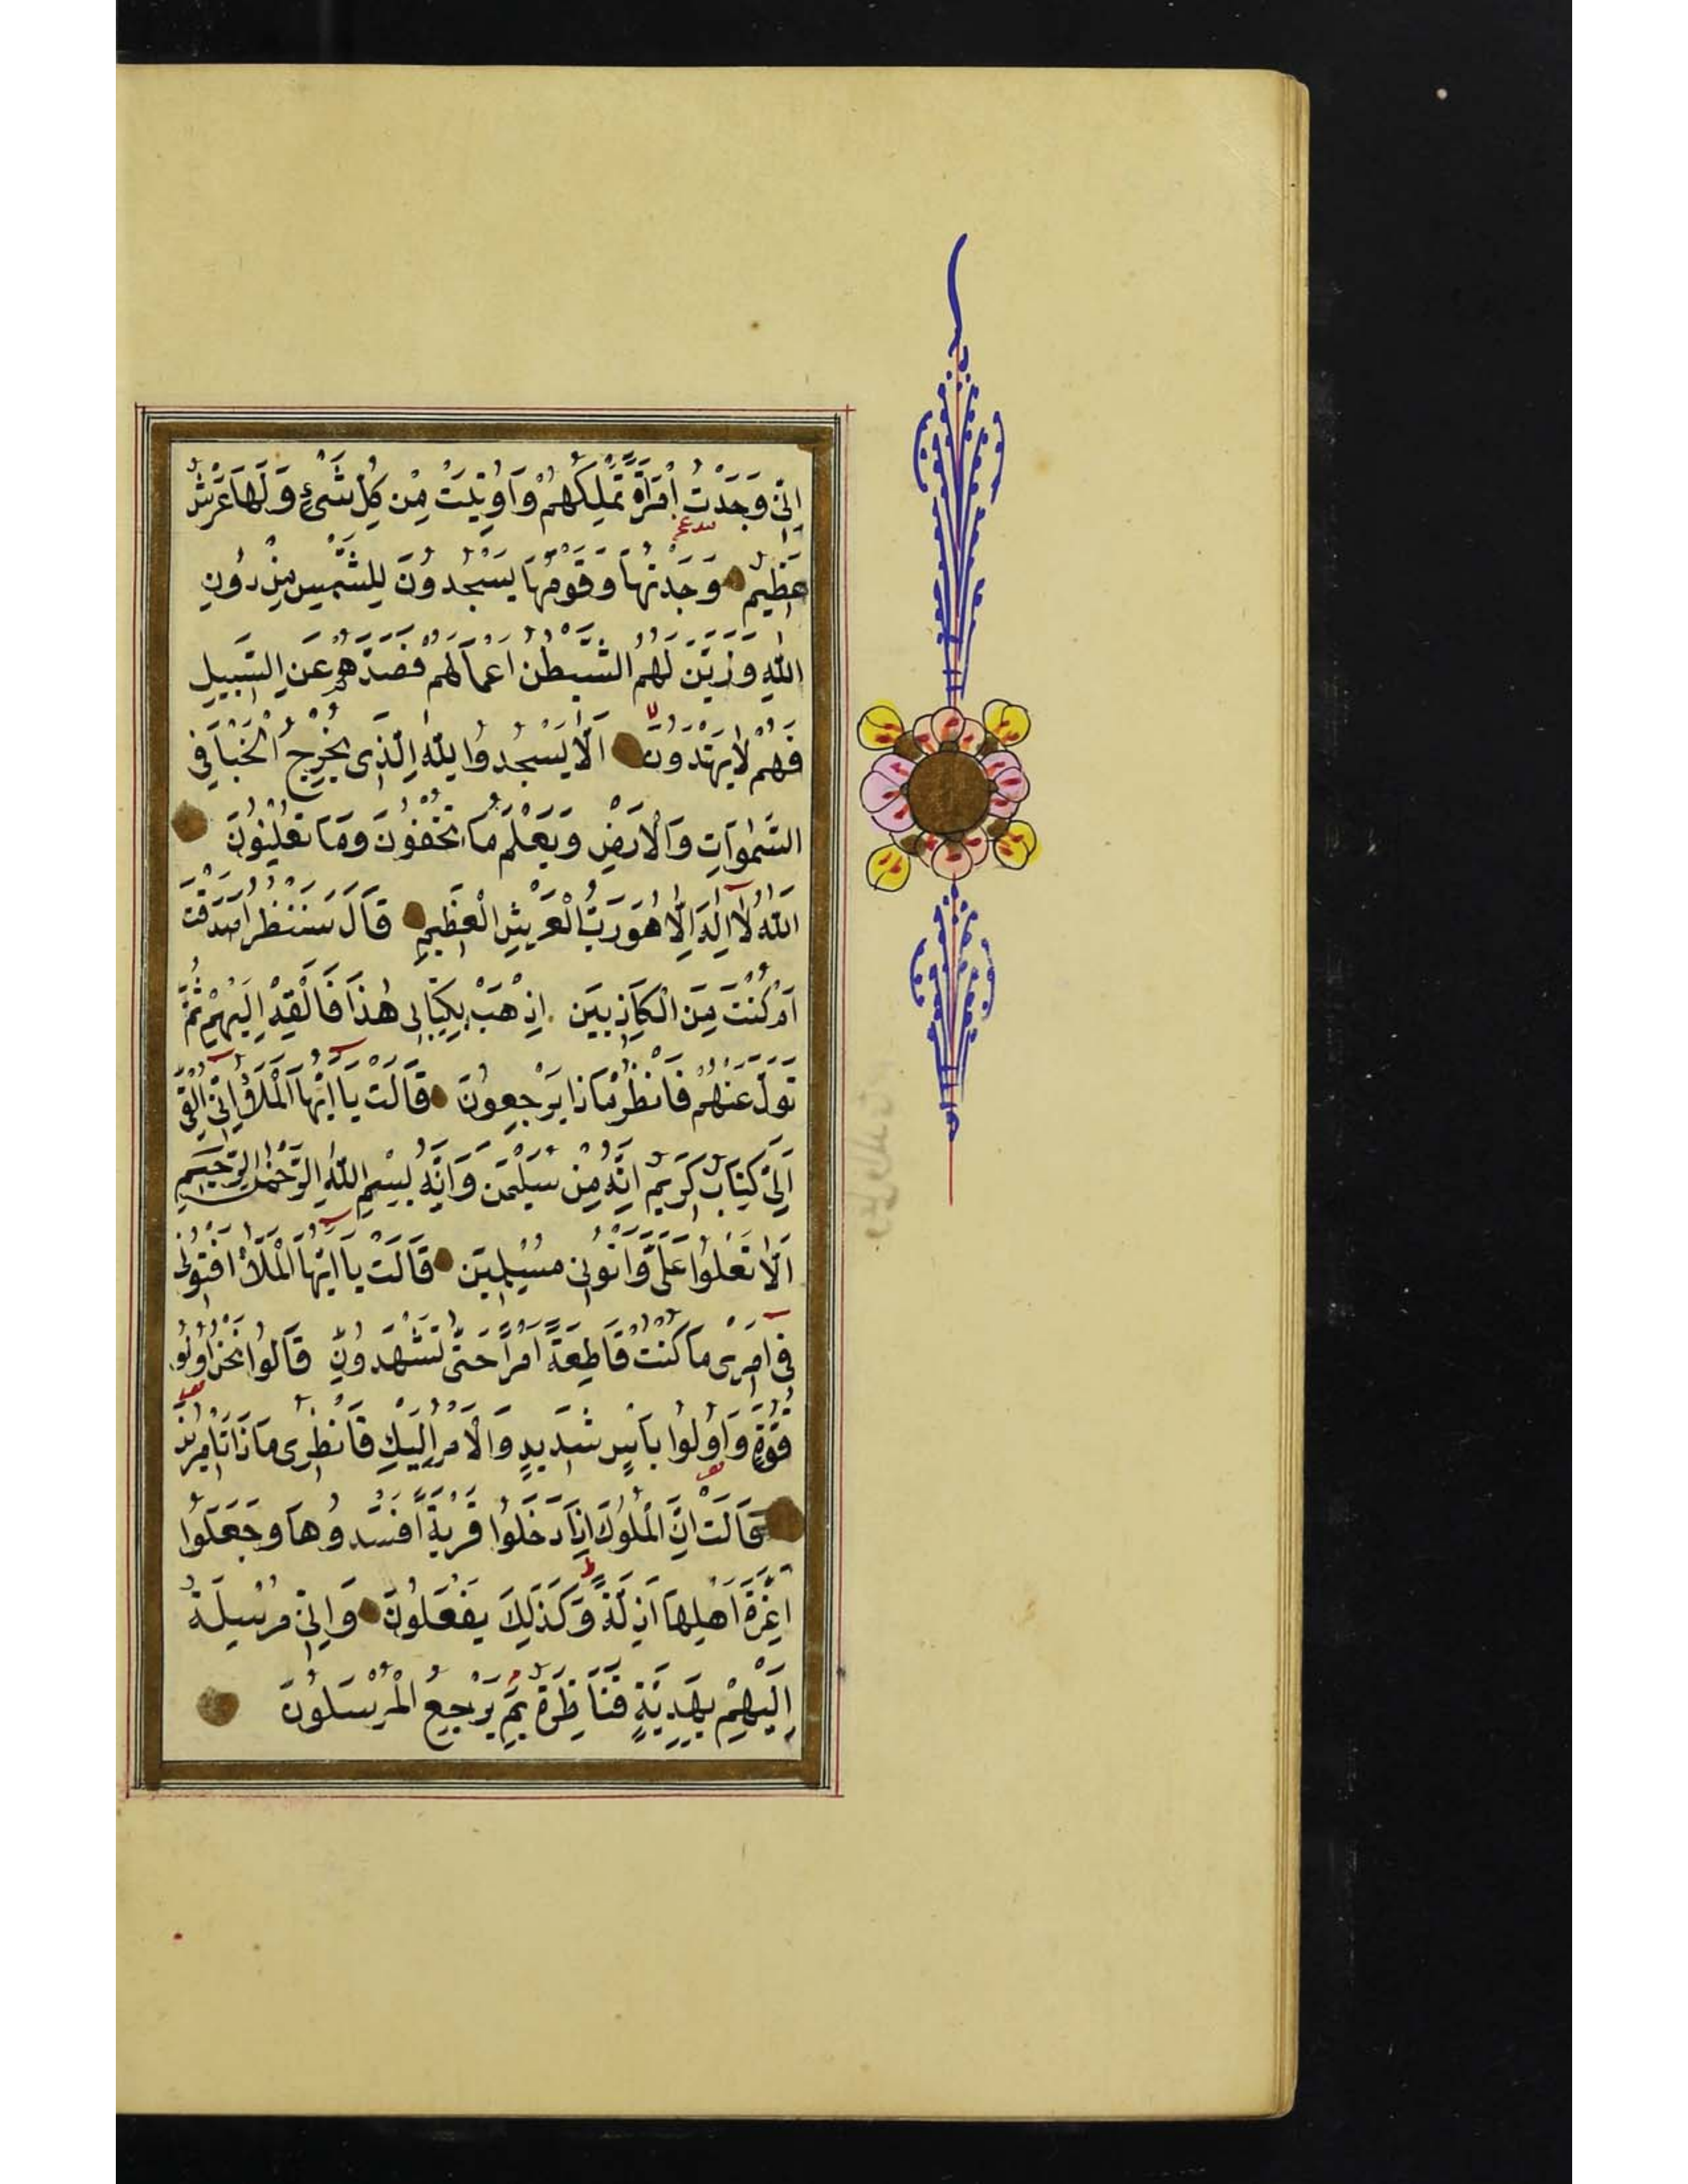 اِنّى وَجَدْتُ امْرَاَةً تَمْلِكُهُمْ وَاُوتِيَتْ مِنْ كُلِّ شَىْءٍ وَلَهَا عَرْشٌ
عَظِيمٌ وَجَدْتُهَا وَقَوْمَهَا يَسْجُدُونَ لِلشَّمْسِ مِنْ دُونِ
اللّٰهِ وَزَيَّنَ لَهُمُ الشَّيْطٰنُ اَعْمَالَهُمْ فَصَدَّهُمْ عَنِ السَّبِيلِ
فَهُمْ لَا يَهْتَدُونَ اَلَّا يَسْجُدُوا لِلّٰهِ الَّذِى يُخْرِجُ الْخَبْاَ فِى
السَّمٰوَاتِ وَالْاَرْضِ وَيَعْلَمُ مَا تُخْفُونَ وَمَا تُعْلِنُونَ
اَللّٰهُ لَا اِلٰهَ اِلَّا هُوَ رَبُّ الْعَرْشِ الْعَظِيمِ قَالَ سَنَنْظُرُ اَصَدَقْتَ
اَمْ كُنْتَ مِنَ الْكَاذِبِينَ اِذْهَبْ بِكِتَابِى هٰذَا فَاَلْقِهْ اِلَيْهِمْ ثُمَّ
تَوَلَّ عَنْهُمْ فَانْظُرْ مَاذَا يَرْجِعُونَ قَالَتْ يَا اَيُّهَا الْمَلَؤُا اِنّى اُلْقِىَ
اِلَىَّ كِتَابٌ كَرِيمٌ اِنَّهُ مِنْ سُلَيْمٰنَ وَاِنَّهُ بِسْمِ اللّٰهِ الرَّحْمٰنِ الرَّحِيمِ
اَلَّا تَعْلُوا عَلَىَّ وَأْتُونِى مُسْلِمِينَ قَالَتْ يَا اَيُّهَا الْمَلَؤُا اَفْتُونِى
فِى اَمْرِى مَا كُنْتُ قَاطِعَةً اَمْرًا حَتّٰى تَشْهَدُونِ قَالُوا نَحْنُ اُولُوا
قُوَّةٍ وَاُولُوا بَاْسٍ شَدِيدٍ وَالْاَمْرُ اِلَيْكِ فَانْظُرِى مَاذَا تَاْمُرِينَ
قَالَتْ اِنَّ الْمُلُوكَ اِذَا دَخَلُوا قَرْيَةً اَفْسَدُوهَا وَجَعَلُوا
اَعِزَّةَ اَهْلِهَا اَذِلَّةً وَكَذٰلِكَ يَفْعَلُونَ وَاِنّى مُرْسِلَةٌ
اِلَيْهِمْ بِهَدِيَّةٍ فَنَاظِرَةٌ بِمَ يَرْجِعُ الْمُرْسَلُونَ